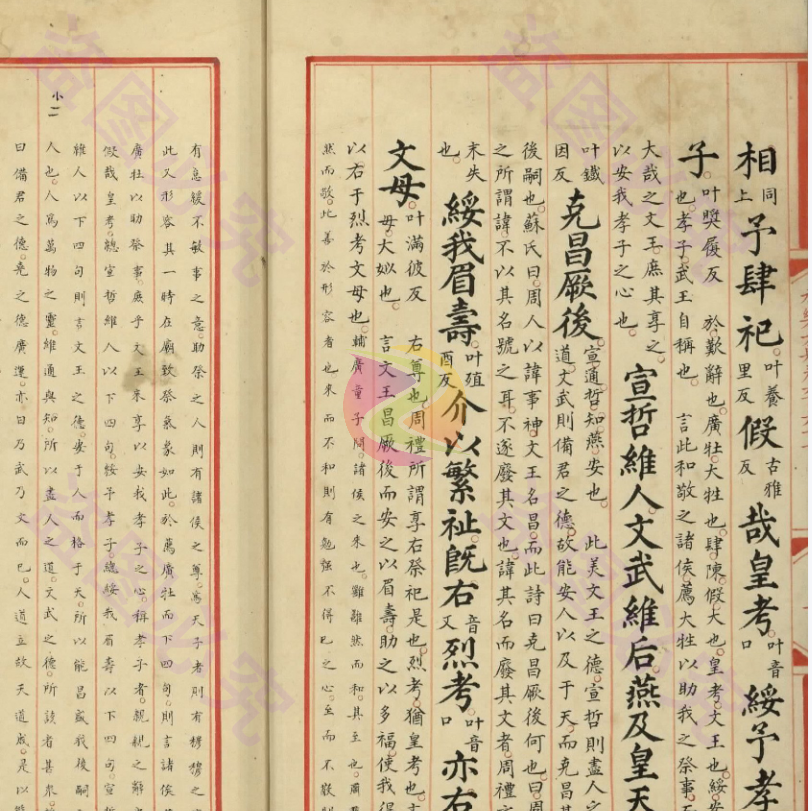 相同上予肆祀叶養里反假古雅反哉皇考叶音口綏予孝
子叶奬履反 於歎辭也廣牡大牲也肆陳假大也皇考文王也綏安
也孝子武王自稱也 言此和敬之諸侯薦大牲以助我之祭事
大哉之文王庶其享之
以安我孝子之心也 宣哲維人文武維后燕及皇天
叶鐵因反克昌厥後宣通哲知燕安也 此美文王之德宣哲則盡人之
道文武則備君之德故能安人以及于天而克昌其
後嗣也蘇氏曰周人以諱事神文王名昌而此詩曰克昌厥後何也曰周
之所謂諱不以其名號之耳不遂廢其文也諱其名而廢其文者周禮
末失也綏我眉壽叶殖酉反介以繁祉旣右音又烈考叶音口亦右
文母叶滿彼反 右尊也周禮所謂享右祭祀是也烈考猶皇考也
母大姒也 言文王昌厥後而安之以眉壽助之以多福使我得
以右于烈考文母也輔廣童子問諸侯之來也雖雝然而和其至也
然而敬此善於形容者也來而不和則有勉強不得已之心至而不敬則
有怠緩不敏事之意助祭之人則有諸侯之尊為天子者則有穆穆之
此又形容其一時在廟致祭氣象如此於薦廣牡而下四句則言諸侯
廣牡以助祭事庶乎文王來享以安我孝子之心稱孝子者親親之辭
假哉皇考總宣哲維人以下四句綏予孝子總綏我眉壽以下四句宣哲
維人以下四句則言文王之德安于人而格于天所以能昌盛我後嗣
小二
人也人為萬物之靈維通與知所以盡人之道文武之德所該者甚
曰備君之德堯之德廣運亦曰乃武乃文而已人道立故天道成是以